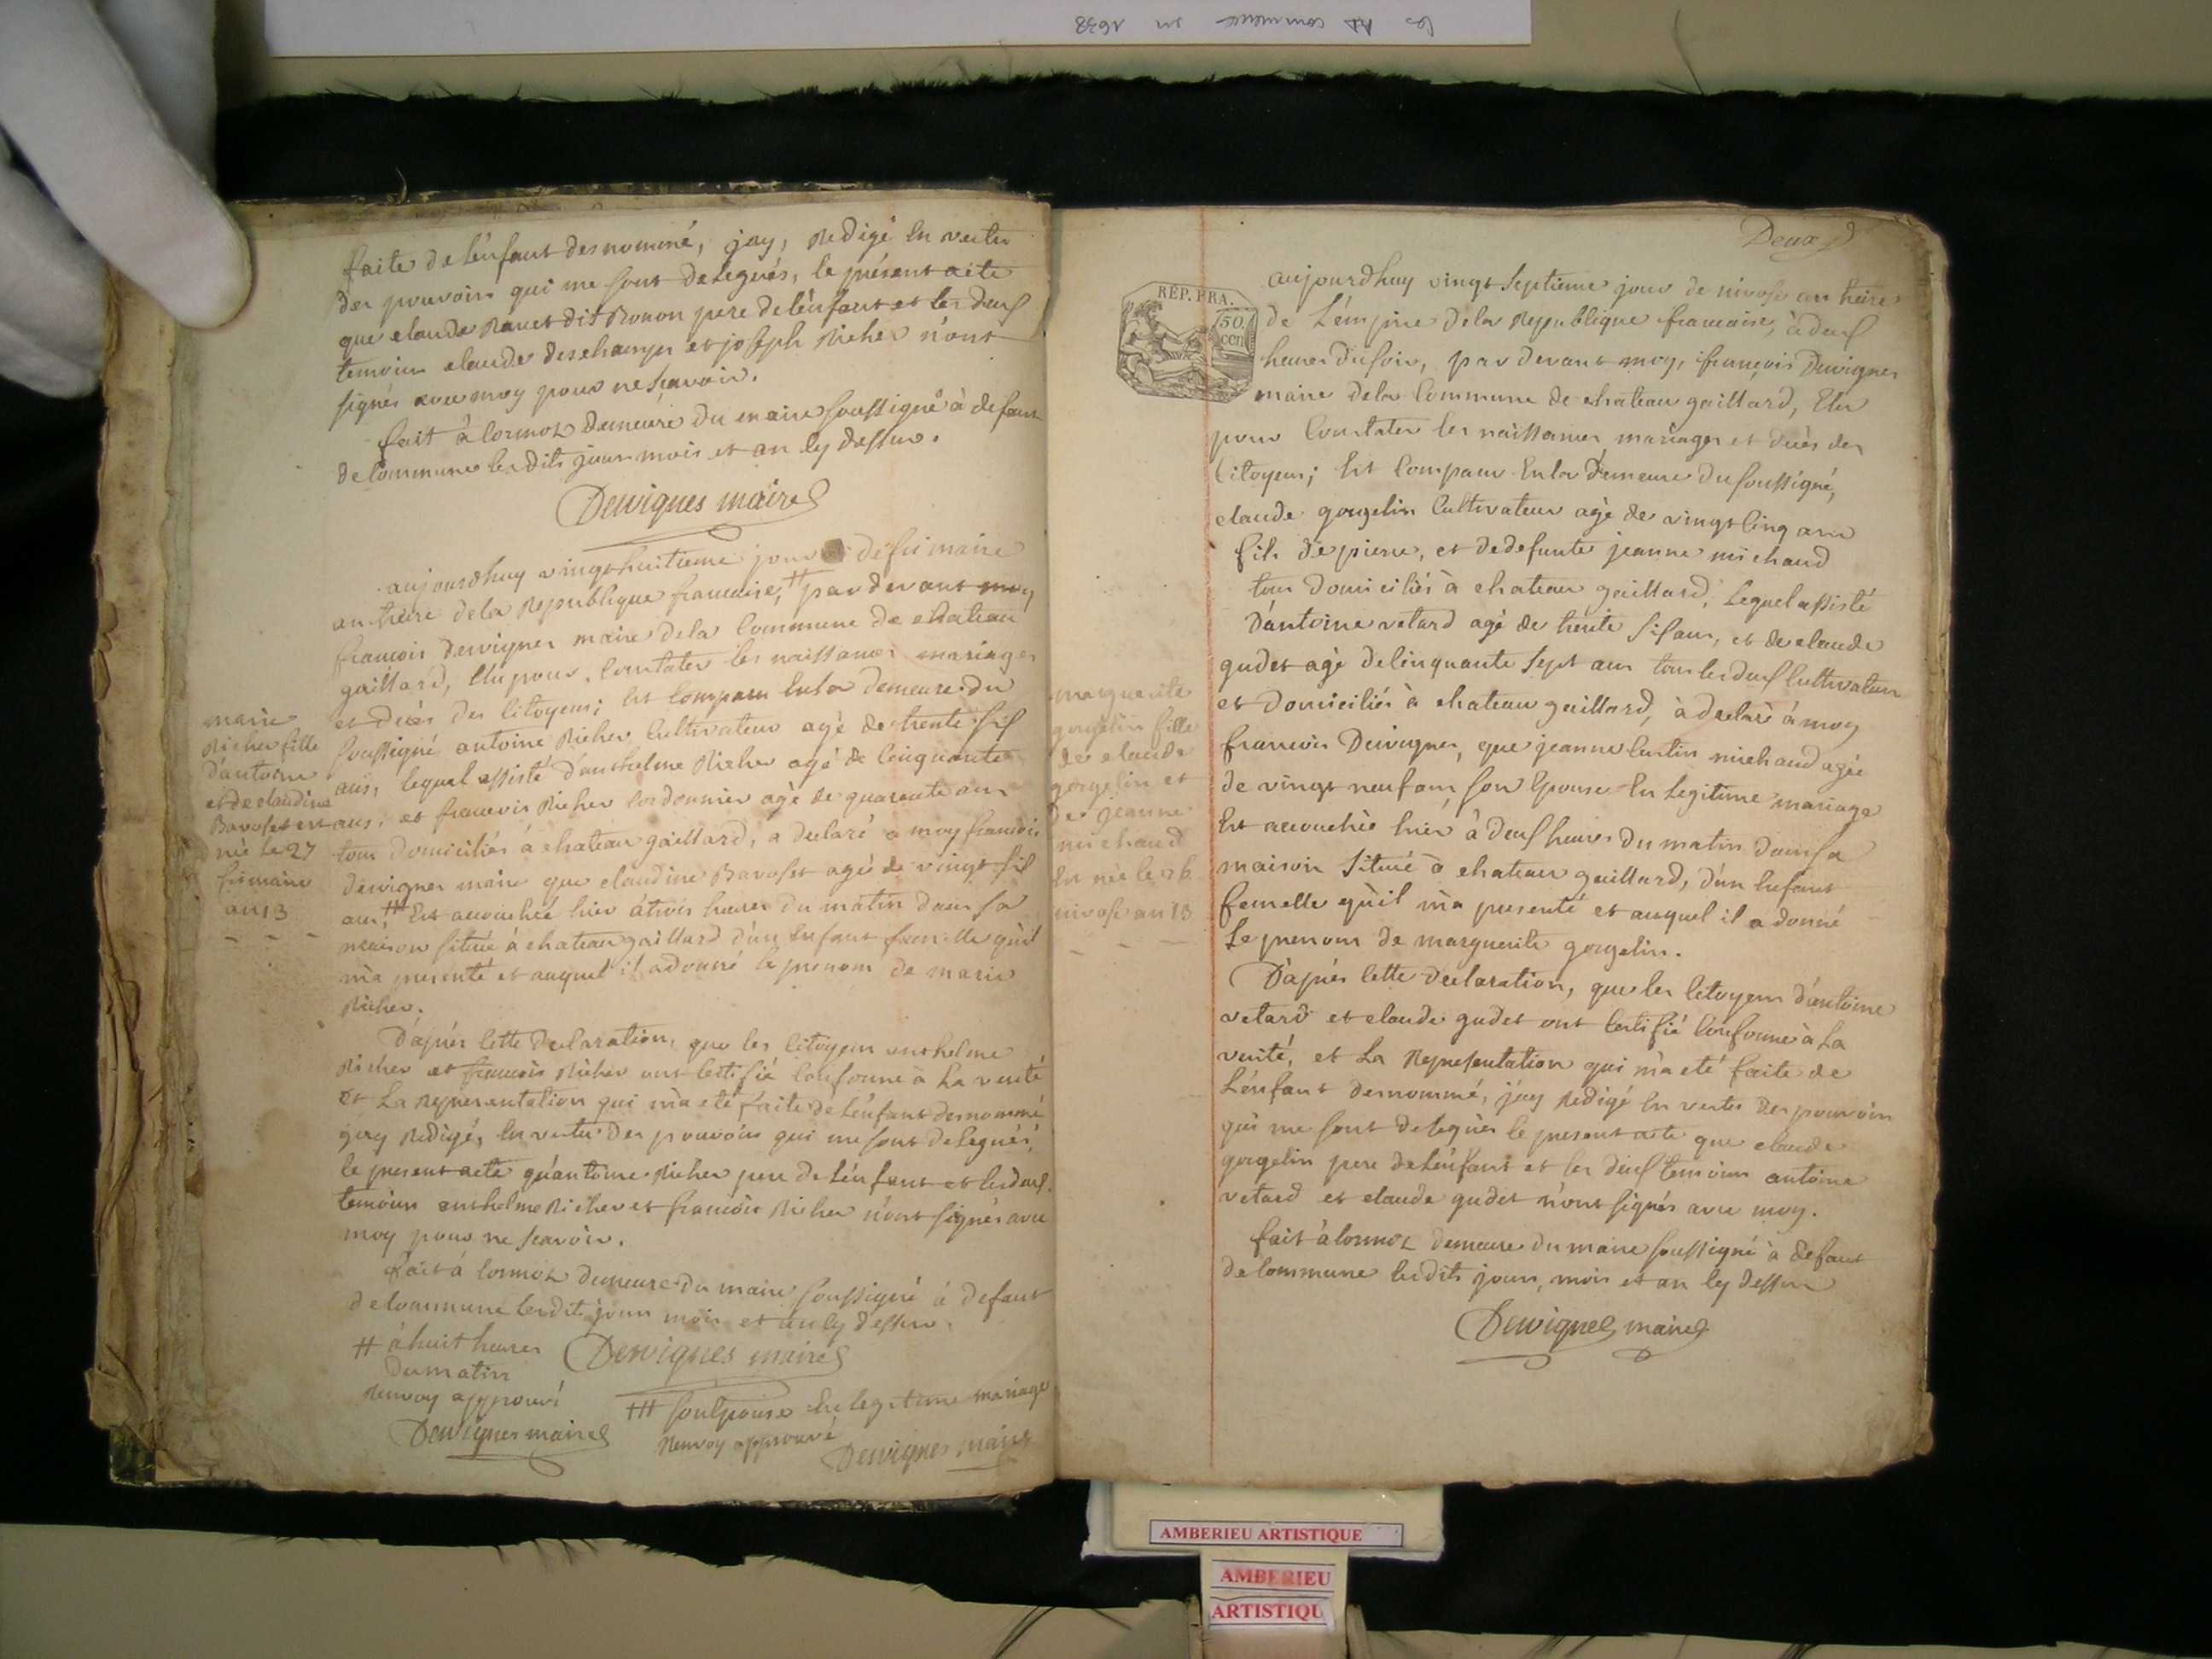 les AD commence en 1638
faite de l'énfant desnommé, jay, redigé en vertu
des pouvoirs qui me sont delegués, le présent acte
que claude Ravet dit Ronon pere de lénfant et les deux
temoins claude deschamps et joseph Richer n'ont
signés avec moy pour ne scavoir.
fait à Cormoz demeure du maire soussigné à defaut
de commune lesdits jour mois et an cy dessus.
Dewignes maire
aujourdhuy vingt huitieme jour de frimaire
an treize de la Republique francaise, # par devant moy
francois dewignes maire de la Commune de chateau
gaillard, Elu pour, Constater les naissances mariages
et decès des Citoyens; Est Comparu en la demeure du
soussigné antoine Richer Cultivateur agé de trente six
ans, lequel assisté d'anthelme Richer agé de Cinquante
ans, et francois Richer Cordonnier agé de quarante ans
tous domiciliés à chateau gaillard, a declaré a moy francois
dewignes maire que claudine Bavoset agé de vingt six
ans, ## Est accouchée hier à trois heures du matin dans sa
maison située à chateau gaillard d'un Enfant femelle qu'il
m'a presenté et auquel il a donné le prenom de marie
Richer.
D'après Cette declaration, que les Citoyens enthelme
Richer et francois Richer ont Certifié Conforme à La verité
et La representation qui m'a eté faite de L'énfant desnommé
jay Redigé, En vertu des pouvoirs qui me sont delegués,
le present acte qu'antoine Richer pere de L'énfant et les deux
temoins enthelme Richer et francois Richer n'ont signés avec
moy pour ne scavoir.
fait à Cormoz demeure du maire soussigné à defaut
de Commune lesdits jour mois et an Cy dessus.
Dewignes maire
# à huit heures
du matin
Renvoy approuvé
Dewignes maire
## son Epouse En legitime mariage
Renvoy approuvé
Dewignes maire
marie
Richer fille
d'antoine
et de claudine
Bavoset est
née le 27
frimaire
an 13
Deux
REP. FRA.
50.
cen
aujourdhuy vingt septieme jour de nivose an treize
de L'émpire de la Republique francaise, à deux
heures du soir, par devant moy, françois Dewignes
maire de la Commune de chateau gaillard, Elu
pour Constater les naissances mariages et decès des
Citoyens; Est Comparu En la Demeure du soussigné,
claude gorgelin Cultivateur agé de vingt Cinq ans
fils de pierre, et de defunte jeanne michaud
tous domiciliés à chateau gaillard, Lequel assisté
D'antoine vetard agé de trente six ans, et de claude
gudet agé de Cinquante sept ans tous les deux Cultivateurs
et domiciliés à chateau gaillard, à declaré à moy
francois Dewignes, que jeanne michaud agée
de vingt neuf ans, son Epouse En Legitime mariage
Est accouchée hier à deux heures du matin dans sa
maison située à chateau gaillard, d'un Enfant
femelle qu'il m'a presenté et auquel il a donné
Le prenom de marguerite gorgelin.
D'après Cette declaration, que les Citoyens d'antoine
vetard et claude gudet ont Certifié Conforme à La
verité, et La Representation qui m'a eté faite de
L'énfant desnommé, j'ay Redigé En vertu des pouvoirs
qui me sont delegués le present acte que claude
gorgelin pere de L'énfant et les deux temoins antoine
vetard et claude gudet n'ont signés avec moy.
fait à Cormoz demeure du maire soussigné à defaut
de Commune lesdits jour, mois et an Cy dessus
Dewignes maire
marguerite
gorgelin fille
de claude
gorgelin et
de jeanne
michaud
Est née le 26
nivose an 13
AMBERIEU ARTISTIQUE
AMBERIEU
ARTISTIQU